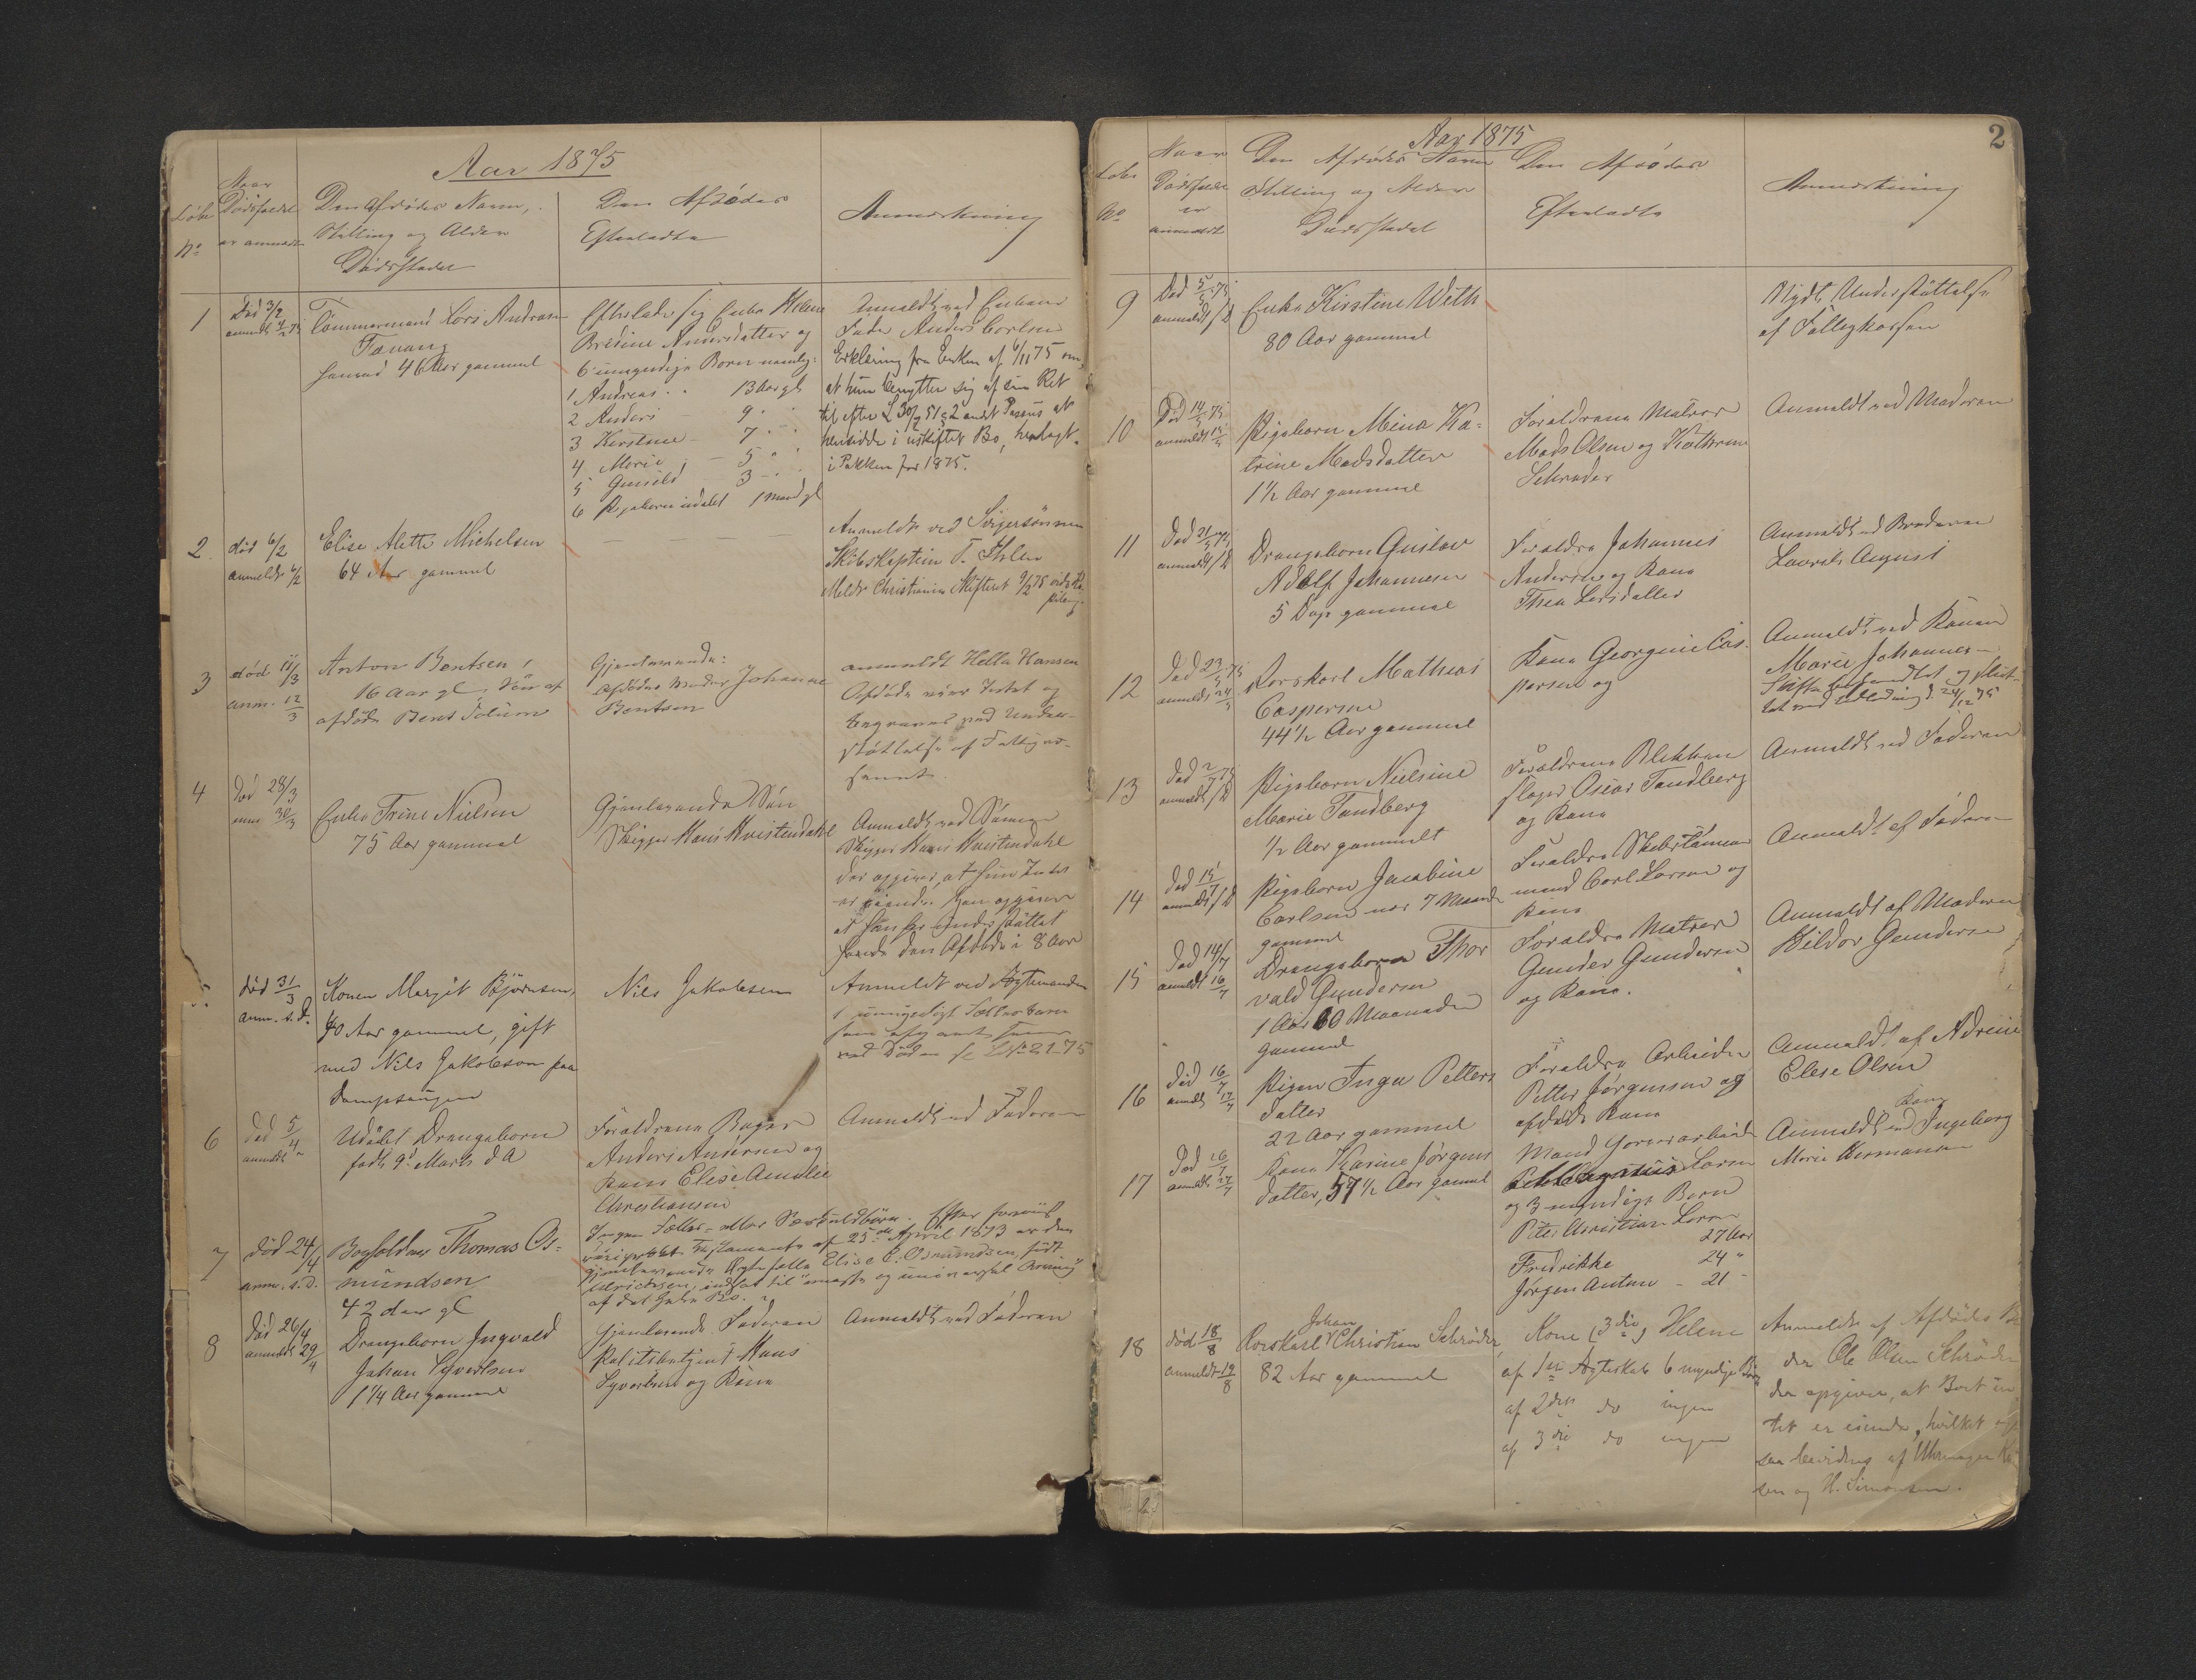 Aar 1875
Løbe
No
Naar
Dødsfaldet
er anmeldt
Den Afdødes Navn,
Stilling og Alder
Dødsstedet
Den Afdødes
Efterladte
Anmærkning
1
Død 3/2
anmeldt 4/2 75
Tømmermand Lars Andersen
Tævang
46 Aar gammel
Efterlader sig Enke Helene
Bredine Andersdatter og
6 umyndige Børn nemlig:
1 Andreas 13 Aar gl
2 Anders – 9 "
3 Kirstine – 7 "
4 Marie – 5 "
5 Gunild – 3 "
6 Pigebarn udøbt 1 Maaned gl
Anmeldt ved Enkens
Fader Anders Carlsen
Erklæring fra Enken af 6/11 75 om,
at hun benytter sig af sin Ret
til efter L 30/7 51 § 2 andet Passus at
hensidde i uskiftet Bo, henlagt
i Pakken for 1875.
2
død 6/2
anmeldt 6/2
Elise Alette Michelsen
64 Aar gammel
Anmeldt ved Svigersønnen
Skibskaptein T. Ihlen
Meldt Christiania Skifteret 9/2 75
3
død 11/3
anm. 12/3
Anton Bentsen,
16 Aar gl. Søn af
afdøde Bent
Gjenlevende:
Afdødes Moder Johanne
Bentsen
anmeldt Hella Hansen
Afdøde eier Intet og
begraves ved Under-
støttelse af Fattigvæ-
senet.
4
Død 28/3
anm 30/3
Enke Trine Nielsen
75 Aar gammel
Gjenlevende Søn
Skipper Hans Kvistendahl
Anmeldt ved Sønnen
Skipper Hans Kvistendahl
der opgiver, at hun Intet
eiende. Han opgiver
at han har understøttet
den Afdøde i 8 Aar
død 31/3
anm. s. D.
Konen Margit Bjørnsen,
40 Aar gammel, gift
med Nils Jakobsen paa
Dampsaugen
Nils Jakobsen
Anmeldt ved Ægtemanden
1 umyndigt Fællesbarn
ved Døden se No 21 75
6
Død 5/4
anmeldt "
Udøbt Drengebarn
født 9de Marts d A
Forældrene Bager
Anders Andersen og
Kone Elise Amalie
Christiansen
Anmeldt ved Faderen
7
død 24/4
anm. s. D.
Bogholder Thomas Os-
mundsen
42 Aar gl
Ingen Fælles- eller Særkuldbørn. Efter
Testamente af 25de April 1873 er den
gjenlevende Ægtefælle Elise C. Osmundsen, født
Ulrichsen, indsat til eneste og universal Arving
af det hele Bo.
8
Død 26/4
anmeldt 29/4
Drengebarn Ingvald
Johan Syvertsen
1 1/4 Aar gammel
Gjenlevende Faderen
Politibetjent Hans
Syvertsen og Kone
Anmeldt ved Faderen
2
Aar 1875
Løbe
No
Naar
Dødsfaldet
er
anmeldt
Den Afdødes Navn
Stilling og Alder
Dødsstedet
Den Afdødes
Efterladte
Anmærkning
9
Død 5/5 75
anmeldt s D
Enke Kirstine With
80 Aar gammel
Nydt Understøttelse
af Fattigkassen
10
Død 14/5 75
anmeldt 15/5
Pigebarn Mina Ka-
trine Madsdatter
1 1/2 Aar gammel
Forældrene Matros
Mads Olsen og Kathrine
Schrøder
Anmeldt ved Moderen
11
Død 21/5 75
anmeldt s D
Drengebarn Gustav
Adolf Johannesen
5 Dage gammel
Forældre Johannes
Andersen og Kone
Thea Larsdatter
Anmeldt ved Broderen
Laurits August
12
Død 23/5 75
anmeldt 24/5
Rorskarl Mathias
Caspersen
44 1/2 Aar gammel
Kone Georgine Cas-
persen og
Anmeldt ved Konen
Marie Johannes-
Skifte behandlet og slut-
tet med Udlodning d 24/12 75
13
Død 2/7 75
anmeldt s D
Pigebarn Nielsine
Marie Tandberg
1/2 Aar gammelt
Forældrene Blikken
slager Oscar Tandberg
og Kone
Anmeldt ved Faderen
14
Død 15/7
anmeldt s D
Pigebarn Jacobine
Carlsen 7 Maaneder
gammel
Forældre Skibstømmer
mand Carl Larsen og
Kone
Anmeldt af Faderen
15
Død 14/7
anmeldt 16/7
Drengebarn Thor
vald Gundersen
1 Aar 10 Maaneder
gammel
Forældre Matros
Gunder Gundersen
og Kone.
Anmeldt af Moderen
Kildor Gundersen
16
Død 16/7
anmeldt 17/7
Pigen Inga Petters
datter
22 Aar gammel
Forældre Arbeider
Petter Jørgensen og
afdøde Kone
Anmeldt af Adrine
Elese Olsen
17
Død 26/7
anmeldt 27/7
Kone Karine Jørgens
datter, 57 1/2 Aar gammel
Mand
Larsen
og 3 myndige Børn
Peter Christian Larsen
27 Aar
Fredrikke 24 "
Jørgen Anton – 21 "
Kone
Anmeldt ved Ingeborg
Marie Hermansen
18
død 18/8
anmeldt 19/8
Johan
Rorskarl Christian Schrøder,
82 Aar gammel
Kone (3die) Helene
af 1ste Ægteskab 6 myndige Børn
af 2det do ingen
af 3die do ingen
Anmeldt af Afdødes
der Ole Olsen Schrøder
der opgiver, at Boet in-
tet er eiende, hvilket og
saa bevidnes af Uhrmager
sen og H. Simonsen.